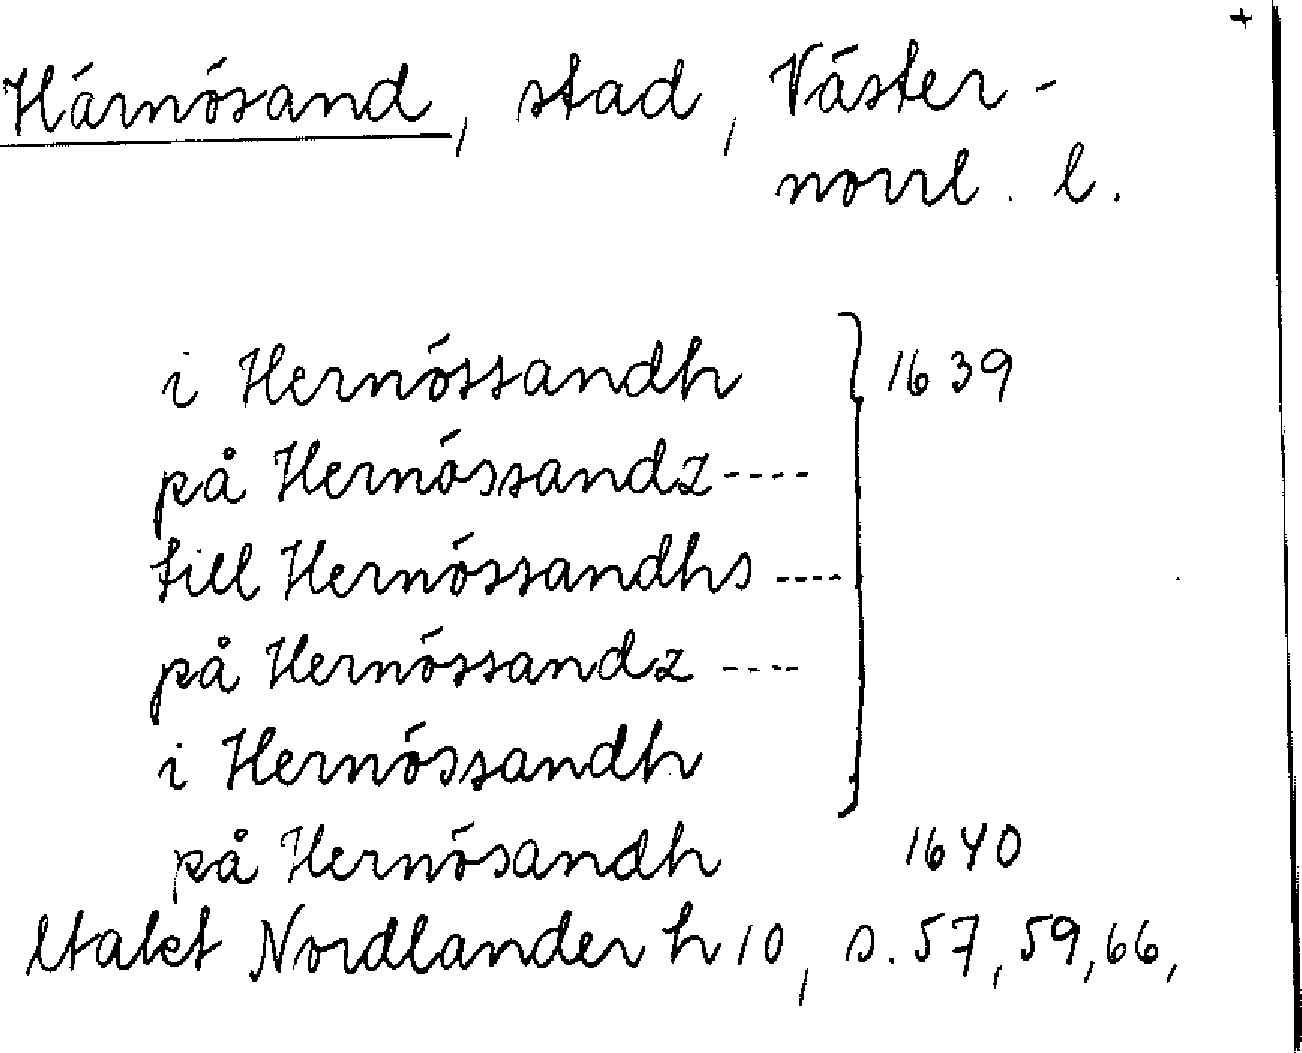 +
Härnösand, stad, Väster-
norrl. l.
i Hernössandh } 1639
på Hernössandz ----
till Hernössandhs ----
på Hernössandz ----
i Hernössandh
på Hernösandh 1640
Utakt Nordlander h 10, s. 57, 59, 66,